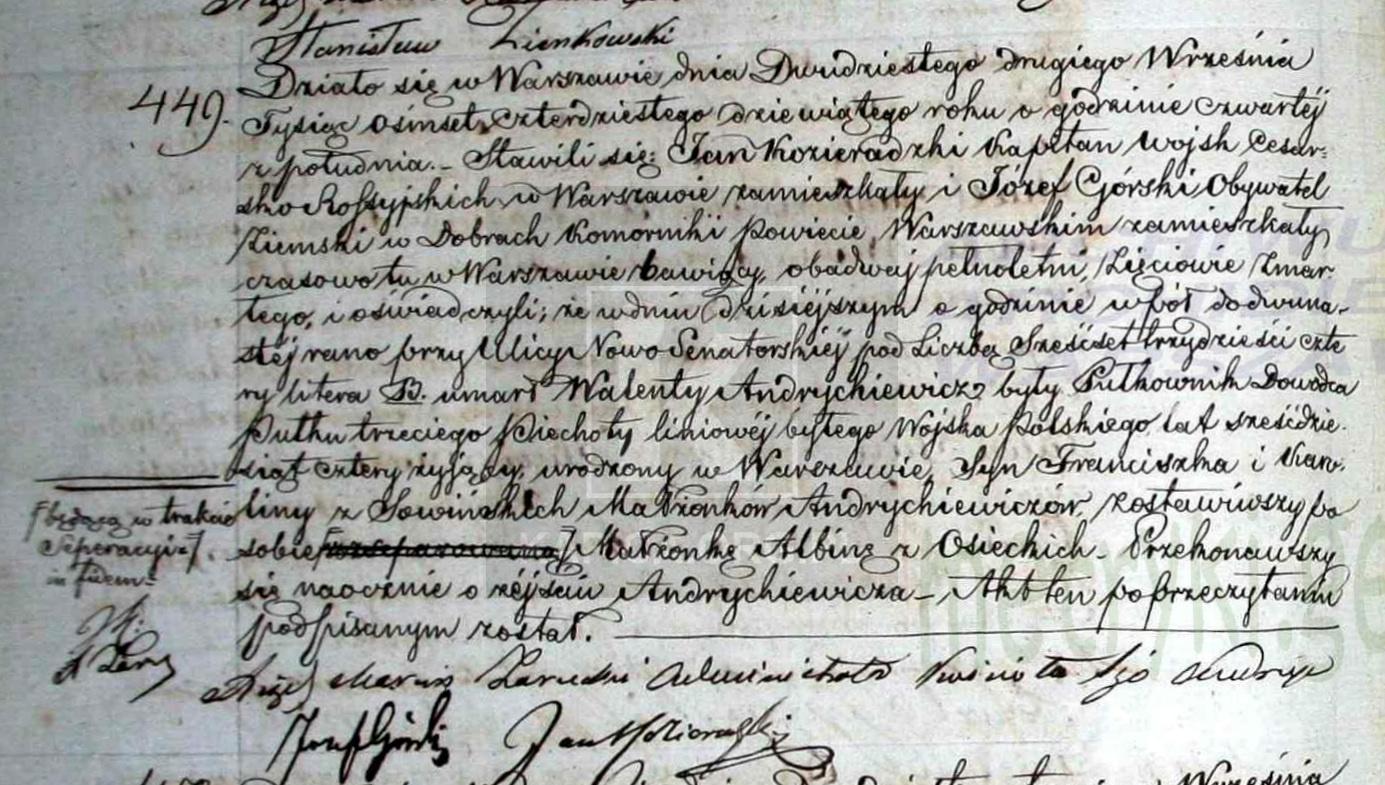 Stanisław Zienkowski
449. Działo się w Warszawie dnia Dwudziestego drugiego Września
Tysiąc Osimset czterdziestego dziewiątego roku o godzinie czwartéj
z południa. – Stawili się: Jan Kozieradzki Kapitan Wojsk Cesar-
sko Rossyiskich w Warszawie zamieszkały i Józef Górski Obywatel
Ziemski w Dobrach Komorniki Powiecie Warszawskim zamieszkały
czasowo tu w Warszawie bawiący, obadwaj pełnoletni, Zięciowie Zmar-
łego, i oświadczyli; że w dniu dzisiéjszym o godzinie w pół do dwuna-
stéj rano przy Ulicy Nowo Senatorskiéj pod Liczbą Sześćset trzydzieści czte
ry litera B. umarł Walenty Andrychiewicz były Pułkownik Dowódca
Pułku trzeciego Piechoty liniowéj byłego Wojska Polskiego lat sześćdzie-
siąt cztery żyjący, urodzony w Warszawie, Syn Franciszka i Karo-
liny z Sowińskich Małżonków Andrychiewiczów, zostawiwszy po
sobie Małżonkę Albinę z Osieckich – Przekonawszy
się naocznie o zéjściu Andrychiewicza – Akt ten po przeczytaniu
podpisanym został.
będącą w trakcie
Seperacyi
in fidem
Marcin Administrator
Józef Górski Jan Kozieradzki
Września